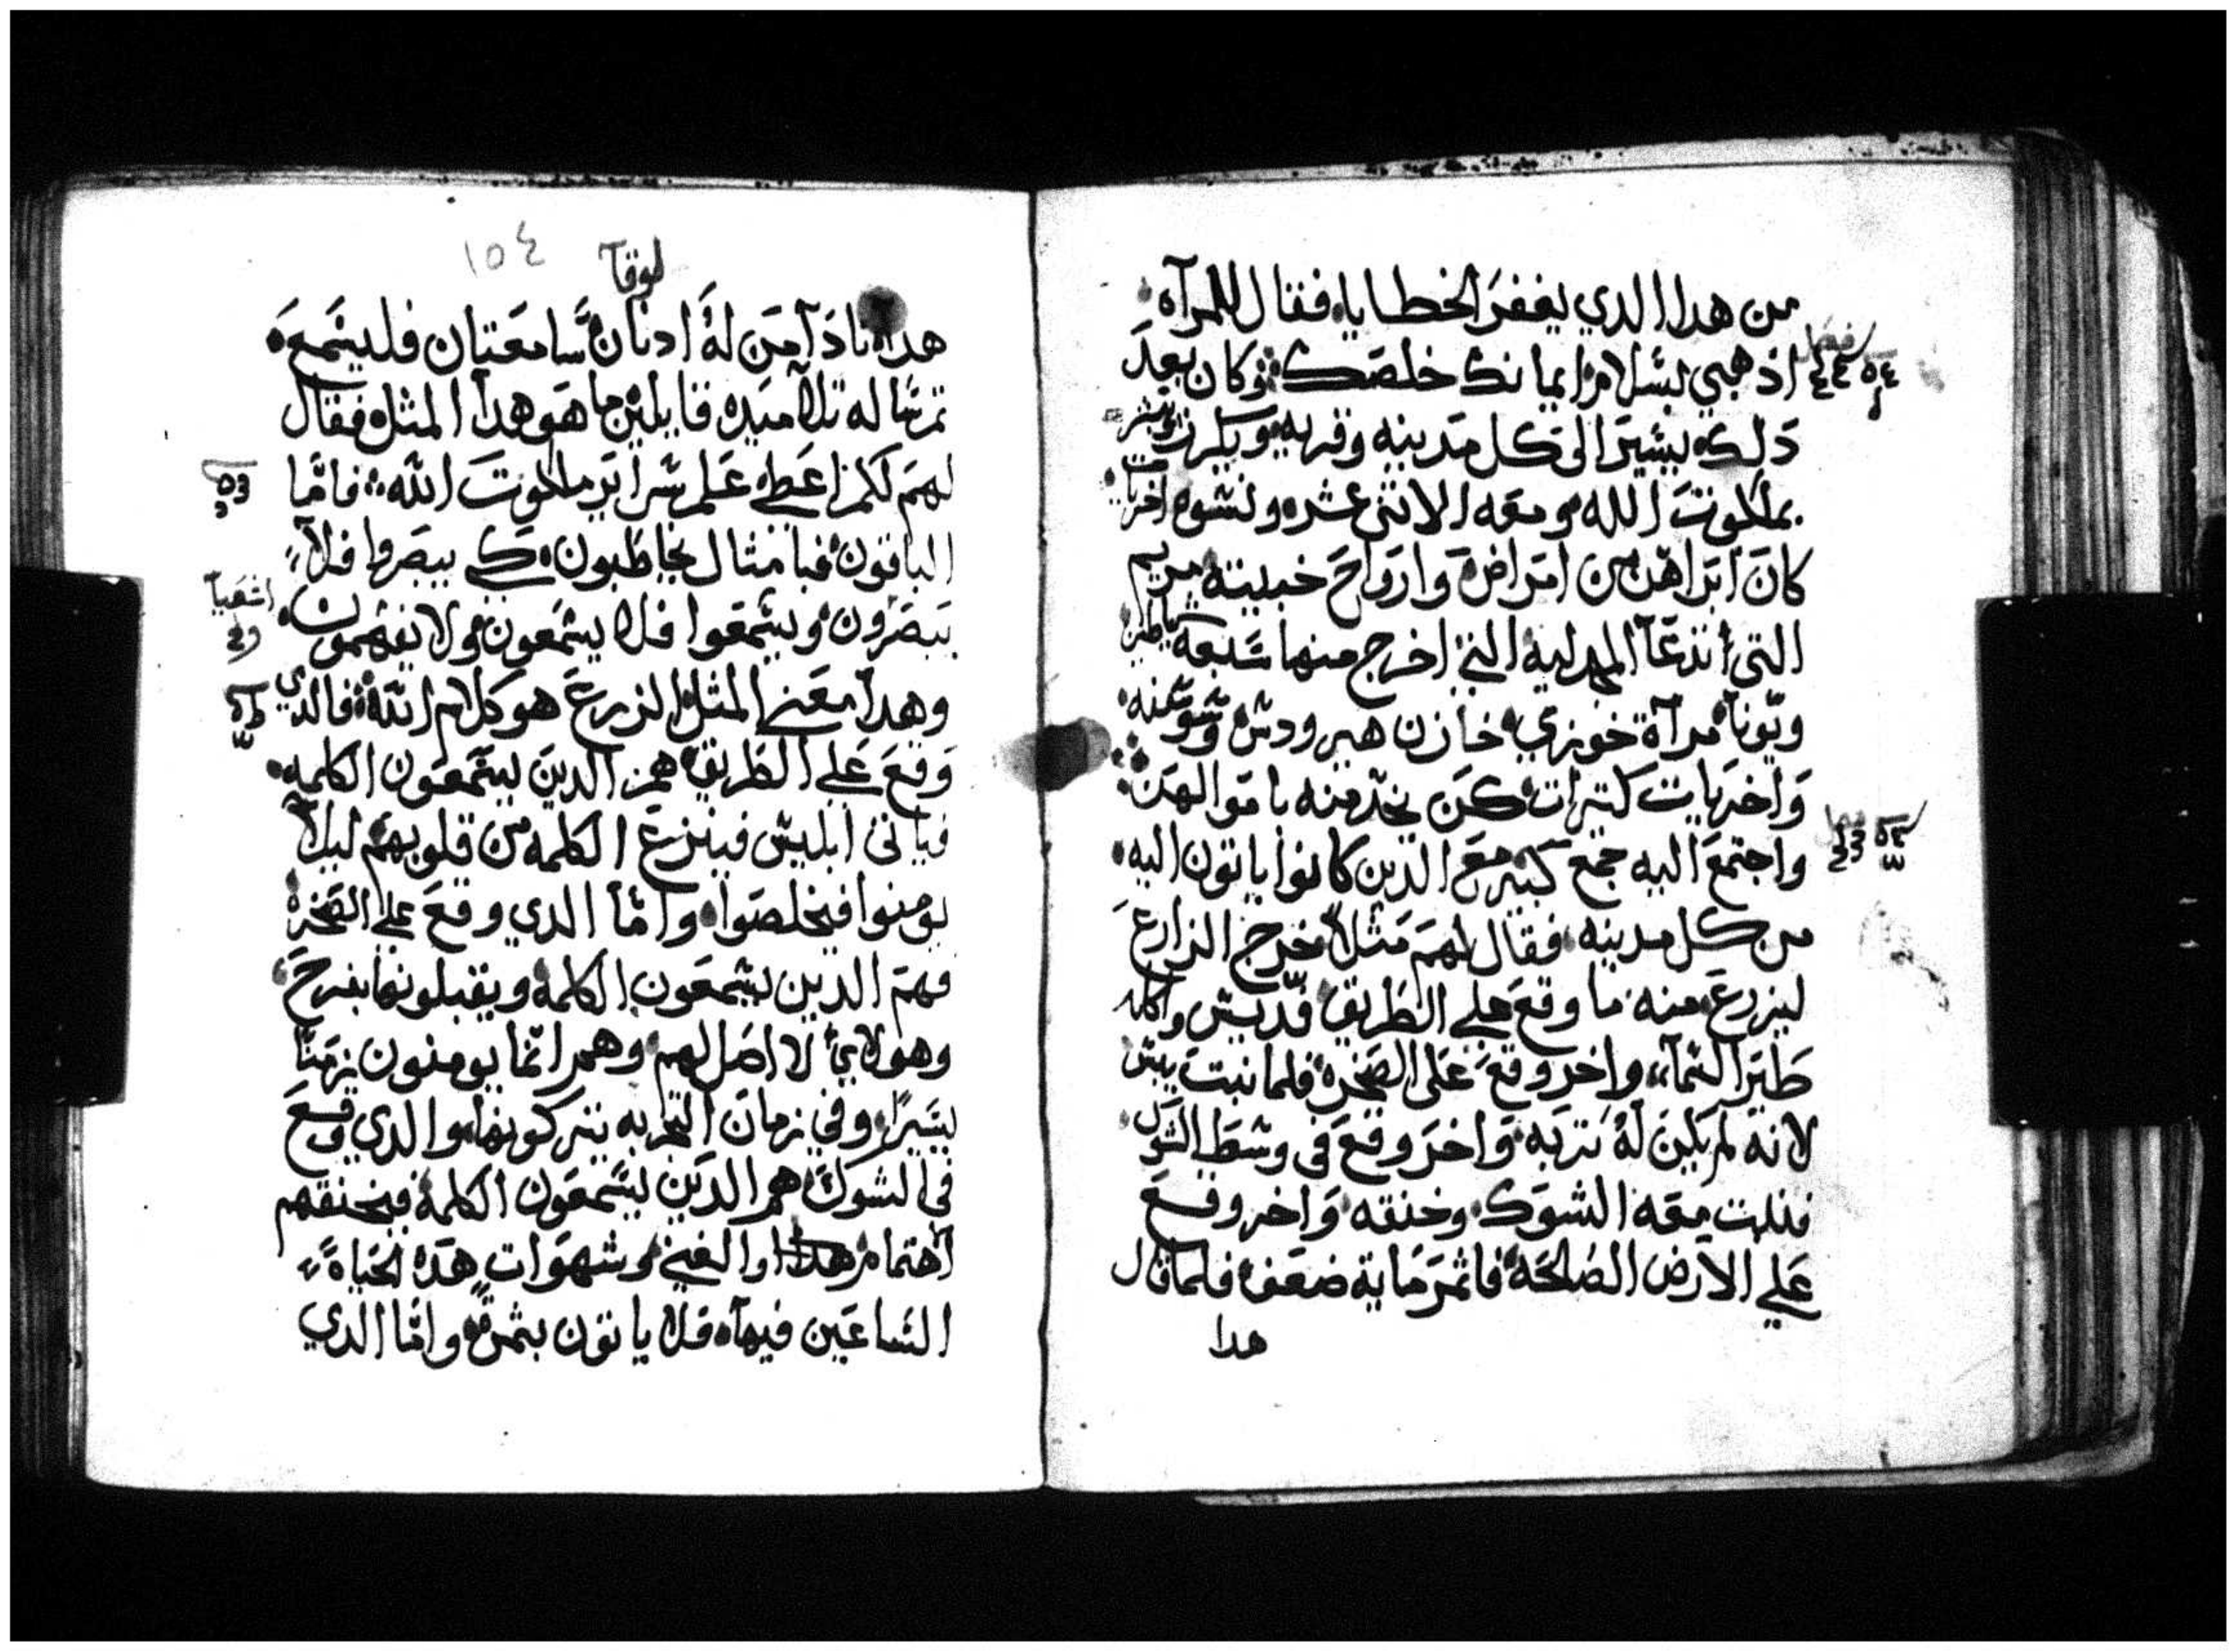 من هدا الدي يغفر الخطايا، فقال للمرآه
فصل
اذهبي بسلام ايمانك خلصك وكان بعد
دلك يسير الى كل مدينه وقريه ويكرز ويبشر
بملكوت الله ومعه الاثنى عشر ونسوه اخريات
كان ابراهن من امراض وارواح خبيته مريم
التي تدعآ المجدليه التي اخرج منها سبعه شياطين
ويونا مرآة خوزي خازن هيرودس وسوسنه
وَاخريات كتيرات كن يخدمنه باموالهن
فصل
واجتمع اليه جمع كتير مع الدين كانوا ياتون اليه
من كل مدينه فقال لهم مَثلاً خرج الزارع
ليزرع منه ما وقع على الطريق فديس واكله
طَير السمآء واخر وقع عَلى الصخره فلما نبت يبس
لانه لم يكن لهُ تربه وَاخر وقع في وسط الشوك
فنبت معه الشوك وخنقه وَاخر وقع
عَلي الارض الصالحة فاثمر مَاية ضعف فلما قال
هدا
لوقآ
١٥٤
هدا نادَآ مَن لهُ ادنان سَامعَتان فليسَمعَ
تم ساله تلاميده قايلين ما هَو هدآ المثل فقال
لهمَ لكم اعطي علم سرآير ملكوت الله فامَّا
الباقون فبامثال يخاطبون كي يبصَروا فلآ
اشعيآ
يَبصَرون ويسَمعَوا فلا يسَمعون ولا يفهمون
وهدآ معَني المثل الزرع هو كلام الله فالدي
وَقعَ عَلي الطَريق هم الدينَ يسَمعَون الكلمه
فياتي ابليس فينزع الكلمه من قلوبهم ليلآ
يومنوا فيخلصَوا وامَّا الدي وقعَ علي الصَخره
فهم الدين يسَمعَون الكلمه ويقبلونها بفرحَ
وهولاي لا اصَل لهم وهم انما يومنون زمَنًا
يسَيرًا وفي زمان التجربه يتركونها والدي وقعَ
في الشوك هم الدَين يسَمعَون الكلمة فيخنقهم
آهتمام هدا والغني وشهوَات هَده الحَياة
السَاعَين فيهآ فلا ياتون بثمرة وامّا الدي